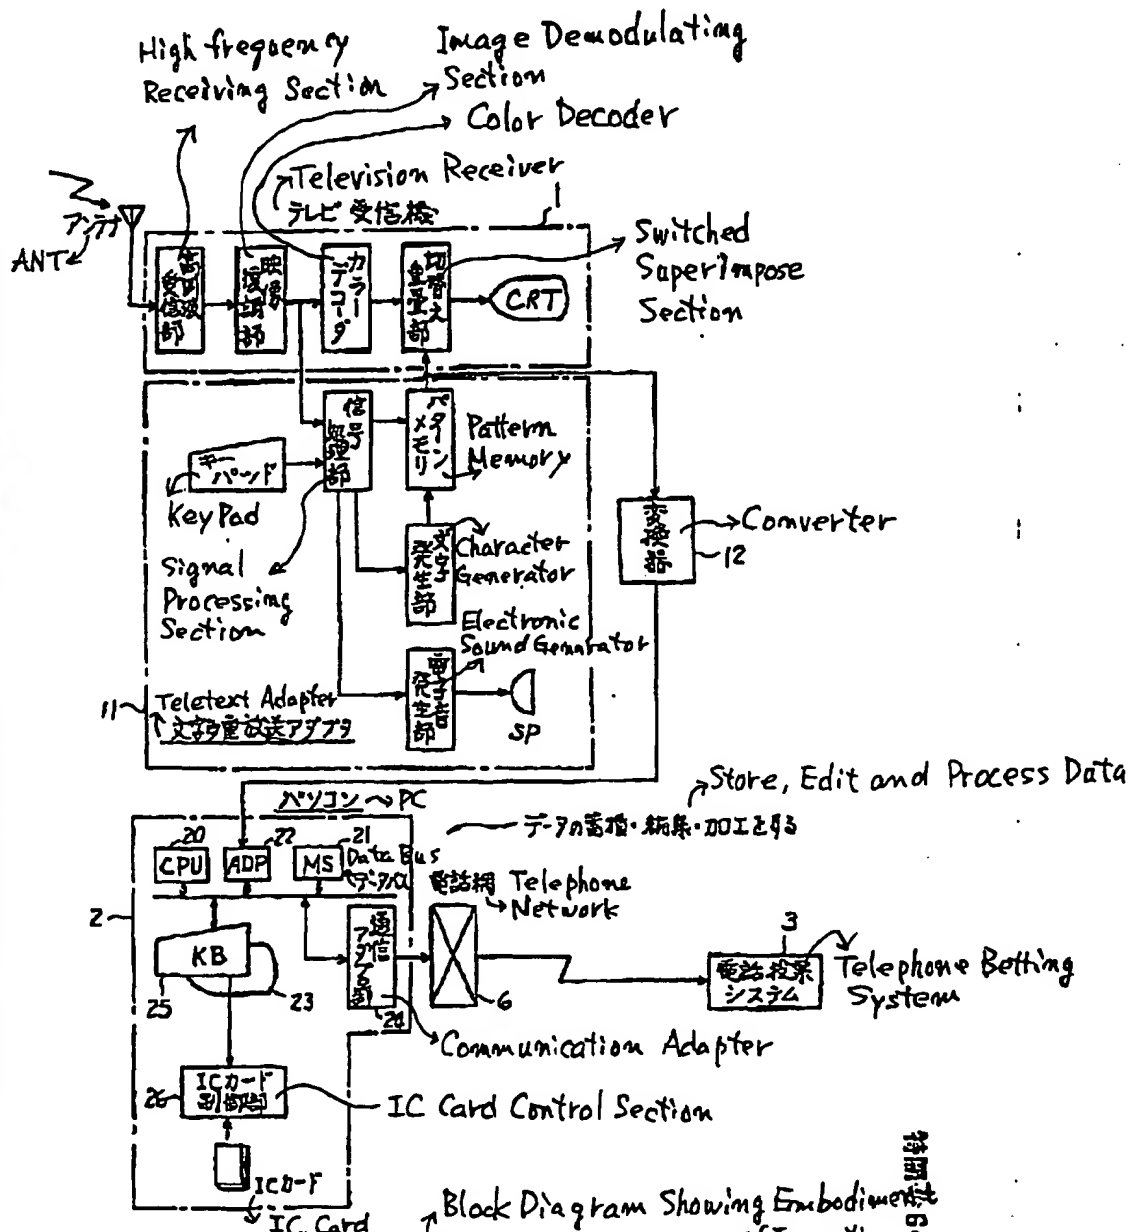 High frequency
Receiving Section
Image Demodulating
Section
Color Decoder
Television Receiver
テレビ受信機
1
アンテナ
ANT
Switched
SuperImpose
Section
高周波
受信部
映像
復調部
カラー
デコーダ
CRT
信号
処理部
パターン
メモリ
Pattern
Memory
キー
パッド
Key Pad
Signal
Processing
Section
文字
発生部
Character
Generator
変換部
Converter
12
Electronic
Sound Genarator
電子音
発生部
SP
11
Teletext Adapter
文字多重放送アダプタ
パソコン
PC
Store, Edit and Process Data
データの蓄積・編集・加工をする
20
22
21
CPU
ADP
MS
Data Bus
データバス
電話網
Telephone
Network
2
KB
25
23
通信
アダプタ部
24
6
3
電話投票
システム
Telephone Betting
System
Communication Adapter
ICカード
制御部
26
IC Card Control Section
ICカード
IC Card
Block Diagram Showing Embodiment